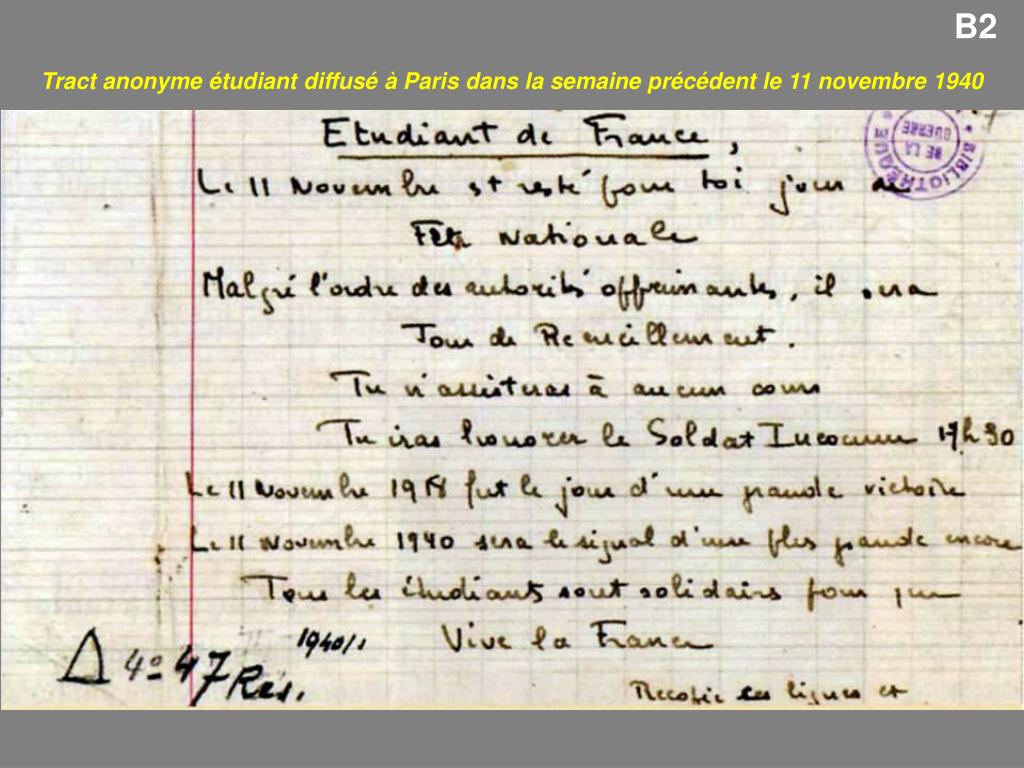 B2
Tract anonyme étudiant diffusé à Paris dans la semaine précédent le 11 novembre 1940
Etudiant de France,
Le 11 Novembre est resté pour toi jour de
Fête Nationale
Malgré l'ordre des autorités opprimantes, il sera
Jour de Recueillement.
Tu n'assisteras à aucun cours
Tu iras honorer le Soldat Inconnu 17h30
Le 11 Novembre 1918 fut le jour d'une grande victoire
Le 11 Novembre 1940 sera le signal d'une plus grande encore
Tous les étudiants sont solidaires pour que
Vive la France
1940/1
Δ 4º 47 Res.
Recopie ces lignes et
BIBLIOTHEQUE
DE LA
GUERRE